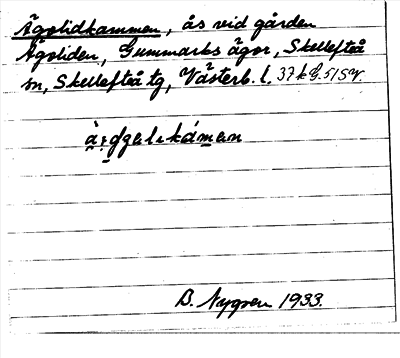 Ägolidkammen, ås vid gården
Ägoliden, Gummarks ägor, Skellefteå
sn, Skellefteå tg, Västerb. l. 37 k G. 5/SV.
B. Nygren 1933.